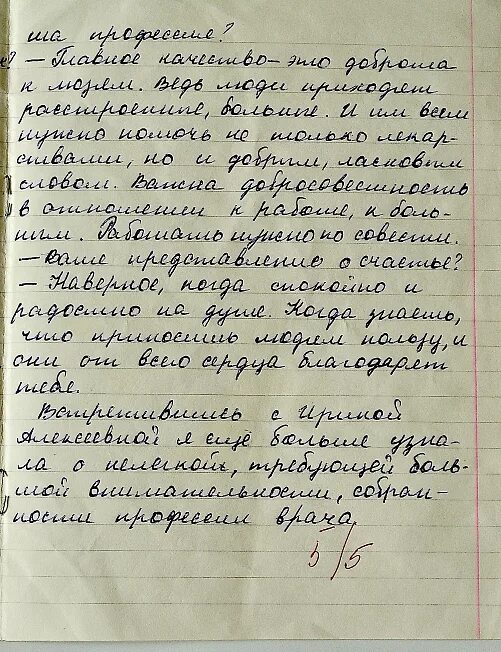 ша профессия?
— Главное качество — это доброта
к людям. Ведь люди приходят
расстроенные, больные. И им всем
нужно помочь не только лекар-
ствами, но и добрым, ласковым
словом. Важна добросовестность
в отношении к работе, к боль-
ным. Работать нужно по совести.
— Ваше представление о счастье?
— Наверное, когда спокойно и
радостно на душе. Когда знаешь,
что приносишь людям пользу, и
они от всего сердца благодарят
тебе.
Встретившись с Ириной
Алексеевной я ещё больше узна-
ла о нелегкой, требующей боль-
шой внимательности, собран-
ности профессии врача
5/5